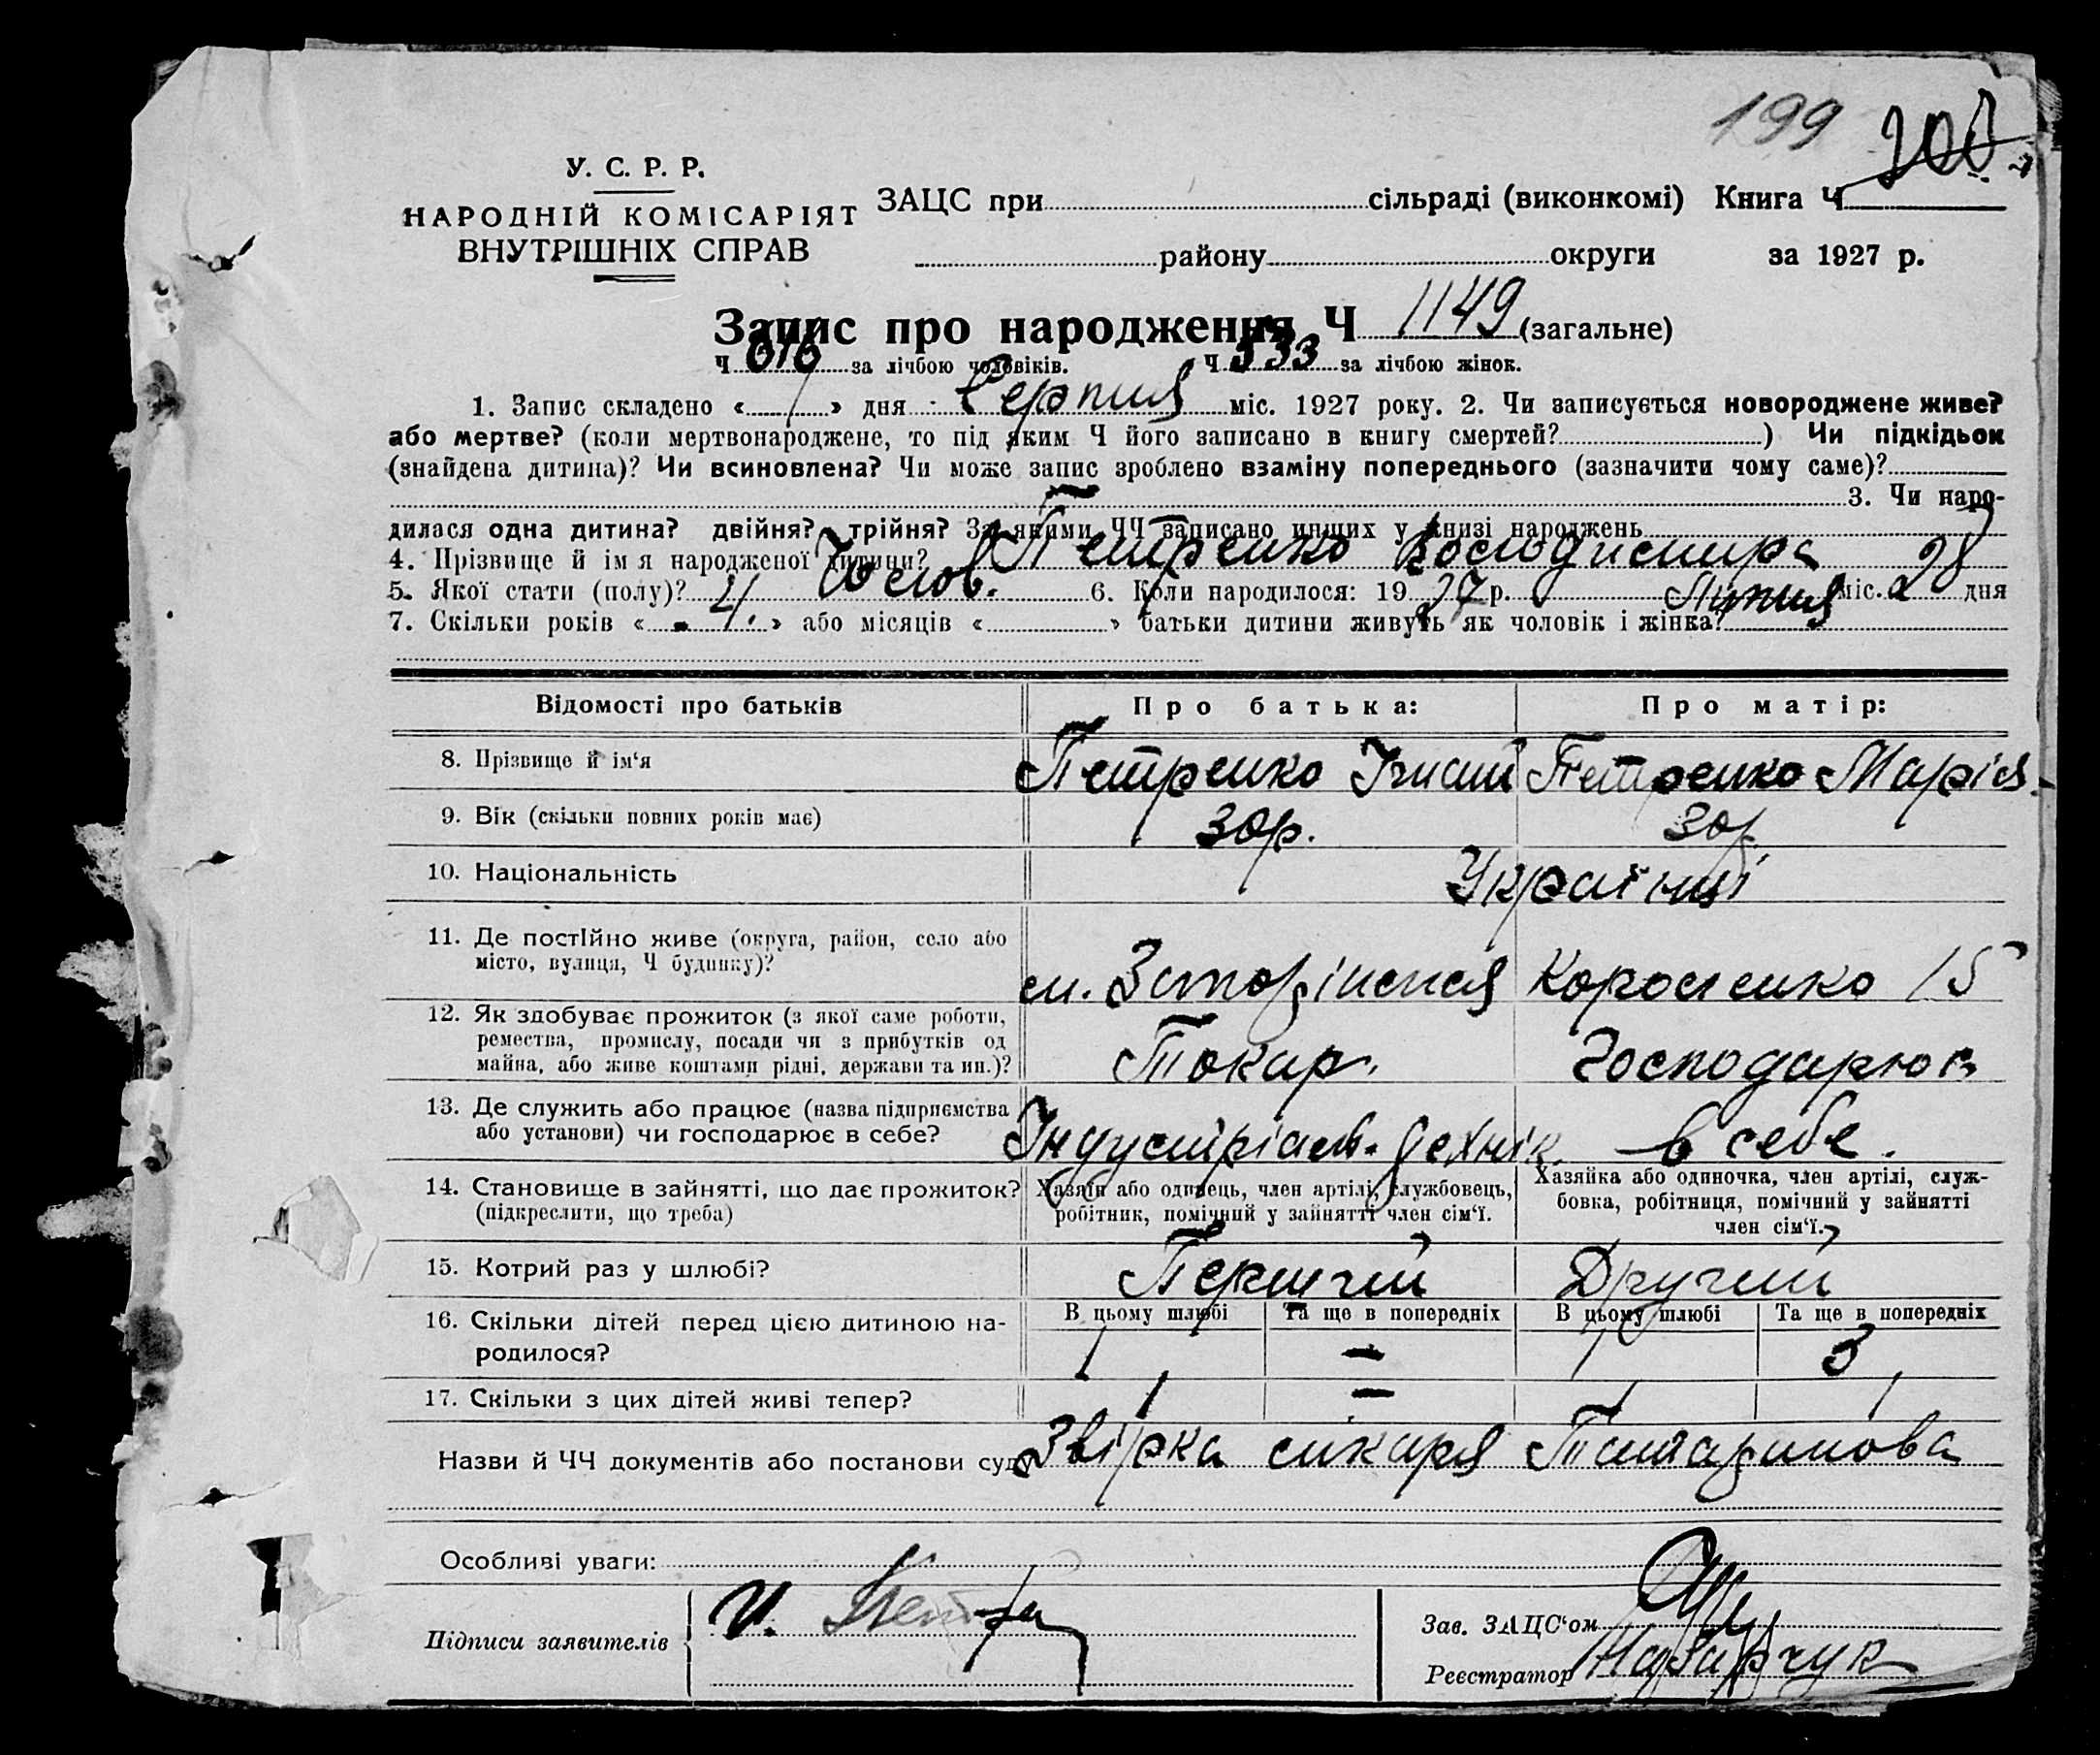 199 200
У. С. Р. Р.
НАРОДНІЙ КОМІСАРІЯТ
ВНУТРІШНІХ СПРАВ
ЗАЦС при сільраді (виконкомі) Книга Ч
району округи за 1927 р.
Запис про народження Ч 1149 (загальне)
Ч 616 за лічбою чоловіків. Ч 533 за лічбою жінок.
1. Запис складено « 1 » дня Серпня міс. 1927 року. 2. Чи записується новороджене живе?
або мертве? (коли мертвонароджене, то під яким Ч його записано в книгу смертей? ) Чи підкідьок
(знайдена дитина)? Чи всиновлена? Чи може запис зроблено взаміну попереднього (зазначити чому саме)?
3. Чи наро-
дилася одна дитина? двійня? трійня? За якими ЧЧ записано инших у книзі народжень
4. Прізвище й ім я народженої дитини? Петренко Володимира
5. Якої стати (полу)? Чолов. 6. Коли народилося: 19 27 р. Липня міс. 28 дня
7. Скільки років « 4. » або місяців « » батьки дитини живуть як чоловік і жінка?
Відомості про батьків Про батька: Про матір:
8. Прізвище й ім‘я Петренко Гнат Петренко Марія
9. Вік (скільки повних років має) 30р. 30р
10. Національність Українці
11. Де постійно живе (округа, район, село або
місто, вулиця, Ч будинку)? Короленко 15
12. Як здобуває прожиток (з якої саме роботи,
ремества, промислу, посади чи з прибутків од
майна, або живе коштами рідні, держави та ин.)? Токар. Господарює
13. Де служить або працює (назва підприємства
або установи) чи господарює в себе? Індустріальн. технік. в себе.
14. Становище в зайнятті, що дає прожиток?
(підкреслити, що треба)
Хазяїн або одинець, член артілі, службовець,
робітник, помічний у зайнятті член сім‘ї.
Хазяйка або одиночка, член артілі, служ-
бовка, робітниця, помічний у зайнятті
член сім‘ї.
15. Котрий раз у шлюбі? Перший Другий
В цьому шлюбі Та ще в попередніх В цьому шлюбі Та ще в попередніх
16. Скільки дітей перед цією дитиною на-
родилося? 1 – 1 3
17. Скільки з цих дітей живі тепер? 1 – 1 1
Назви й ЧЧ документів або постанови суду Звірка лікаря
Особливі уваги:
Підписи заявителів И. Петр
Зав. ЗАЦС‘ом
Реєстратор Назарчук